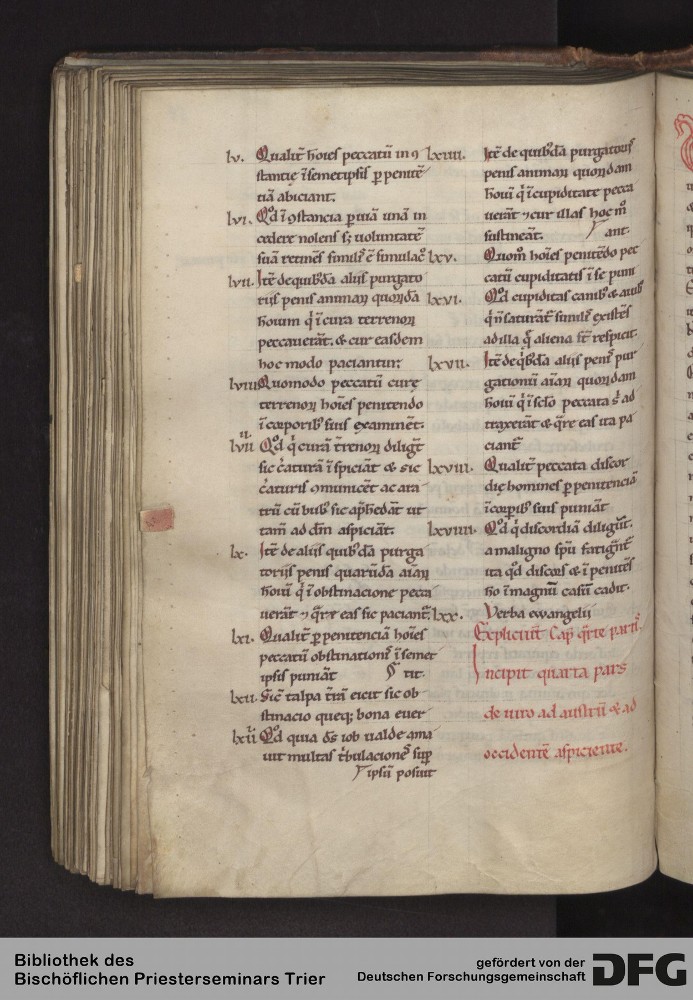 lv. Qualit̄ hoīes peccatū in ꝯ
stantie ī semetipsis ꝑ penitē
tiā abiciant.
lvi. Qd̄ ī ꝯstancia ꝑ uiā unā in
cedere nolens sꝫ uoluntatē
suā retinēs simil' ē simulac̊
lvii. Itē de quibꝰdā alijs purgato
rijs penis animaꝝ quoꝛdā
houim q̇ ī cura terrenoꝝ
peccauerāt. & cur easdem
hoc modo paciantur.
lviii Quomodo peccatū curę
terrenoꝝ hoīes penitendo
ī corporibꝰ suis examinēt.
lviiii. Qd̄ q̇ curā t̄renoꝝ diligūt
sic c̄aturā īspiciāt & sic
c̄aturis ꝯmunicēt ac ara
trū cū bubꝰ sic app̄hedāt ut
tam̄ ad dm̄ aspiciāt.
lx. Itē de alijs quibꝰdā purga
torijs penis quarūdā aīaꝝ
houī q̇ ī obstinacione pecca
uerāt ⁊ qr̄e eas sic paciant᷑.
lxi. Qualit̄ ꝑ penitenciā hoīes
peccatū obstinationis ī semet
ipsis puniāt
lxii. Sic̄ talpa t̄rā eicit sic ob
stinacio queqꝫ bona euer¶tit.
lxiii Qd̄ quia ds̄ iob ualde ama
uit multas t̄bulacionēs suꝑ
ipsū posuit
lxiiii. Itē de quibꝰdā purgatorijs
penis animaꝝ quoꝛdam
houī q̇ ī cupiditate pecca
uerāt ⁊ cur illas hoc m̊
sustineāt.
lxv. Quom̊ hoīes penitēdo pec
catū cupiditatis ī se puni¶ant.
lxvi. Qd̄ cupiditas canibꝰ & auibꝰ
q̇ n̄ saturāt᷑ similis existēs
ad illa q̄ aliena st̄ respicit.
lxvii. Itē de q̇bꝰdā alijs penis pur
gationū aīaꝝ quoꝛdam
houī q̇ ī sc̄lo peccata s' ad
traxerāt & qr̄e eas ita pa
ciant᷑
lxviii. Qualit̄ peccata discor
dię homines ꝑ penitenciā
ī corpibꝰ suis puniāt
lxviiii. Qd̄ q̇ discordiā diligūt.
a maligno spū fatigāt᷑
ita qd̄ discors & ī penitēs
hō ī magnū casū cadit.
lxx. Verba ewangelii
Expliciūt Cap̄ t̄cie partis.
Incipit quarta pars
de uiro ad austrū & ad
occidentē aspiciente.
Bibliothek des
Bischöflichen Priesterseminars Trier
gefördert von der
Deutschen Forschungsgemeinschaft
DFG